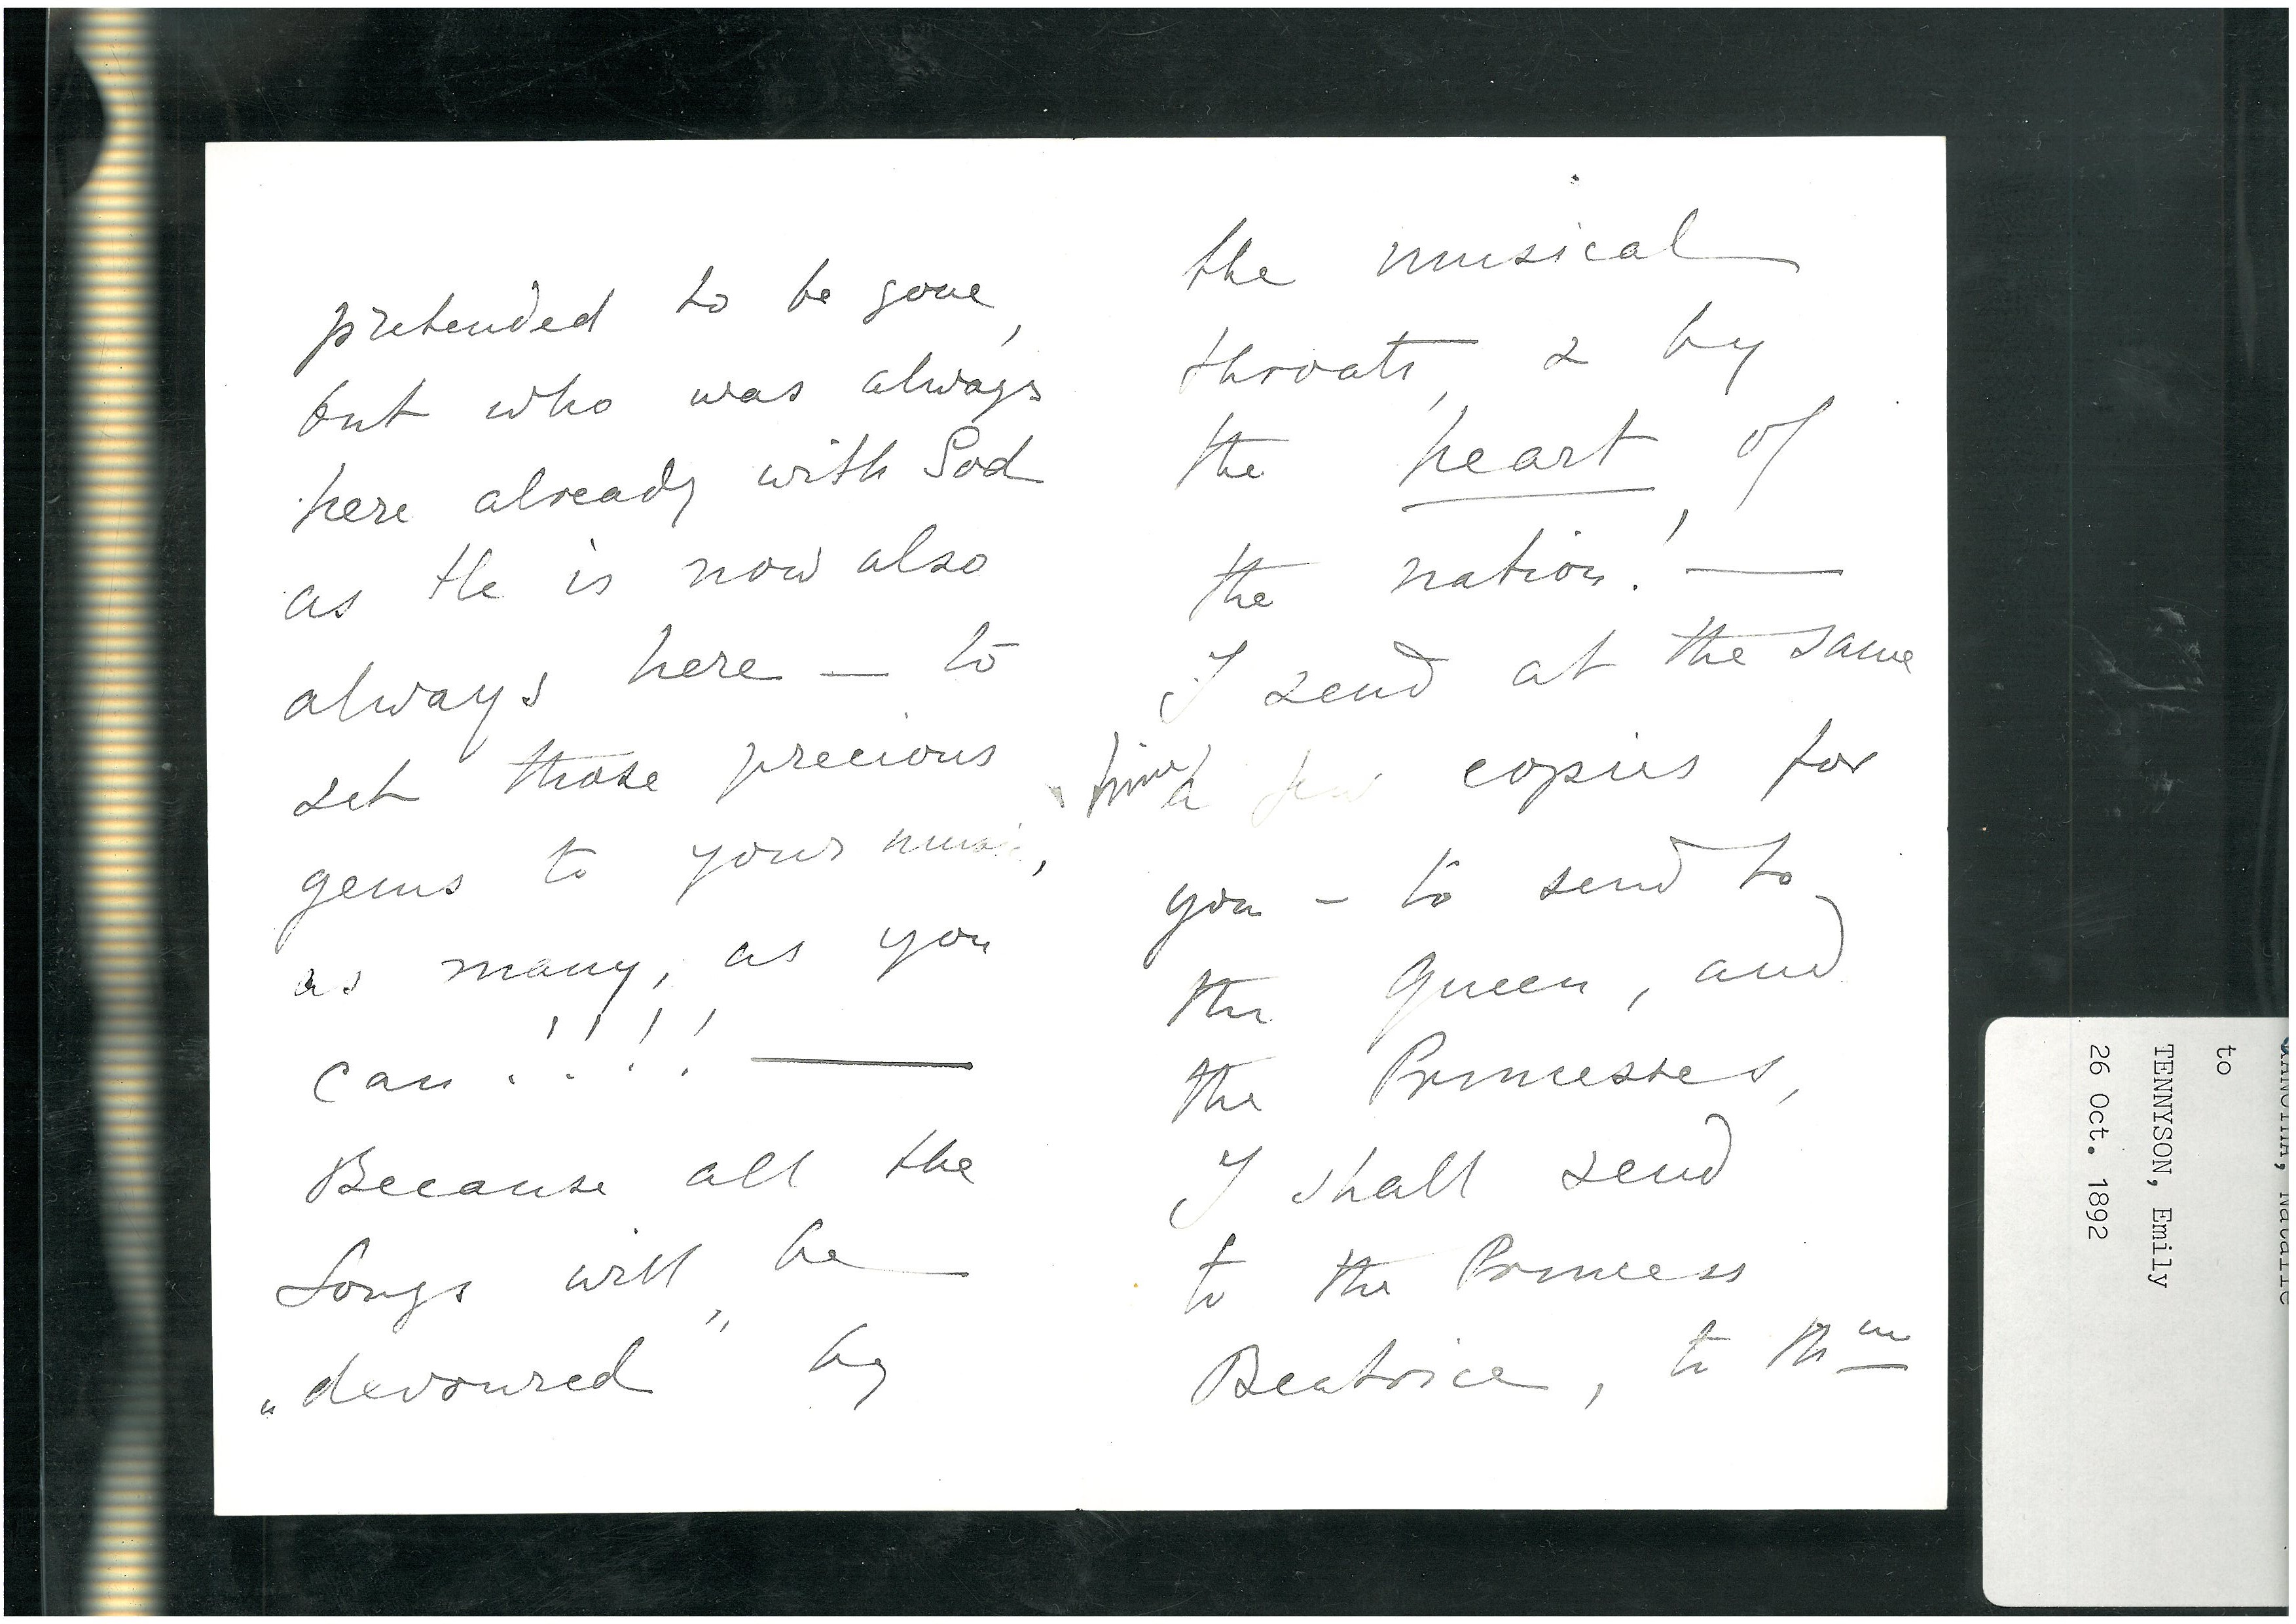 pretended to be gone,
but who was always
here already with God
as He is now also
always here — to
set those precious
gems to your music,
as many, as you
can!!!! —
Because all the
Songs will be
„devoured" by
the musical
throats, & by
the heart, of
the nation! —
I send at the same
time a few copies for
you – to send to
the Queen, and
the Princesses,
I shall send
to the Princess
Beatrice, to Mme
to
TENNYSON, Emily
26 Oct. 1892